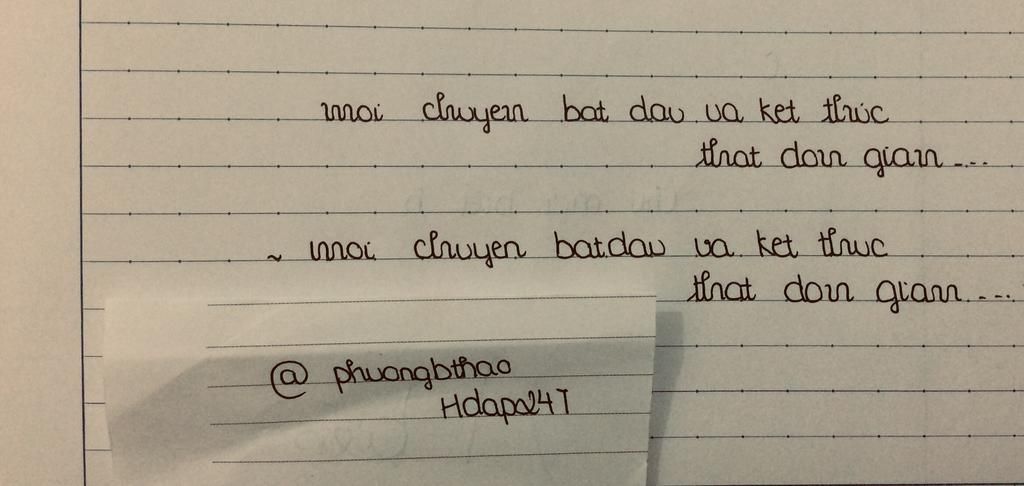 moi chuyen bat dau va ket thuc
that don gian ....
~ moi chuyen bat dau va ket thuc
that don gian ....
@ phuongbthao